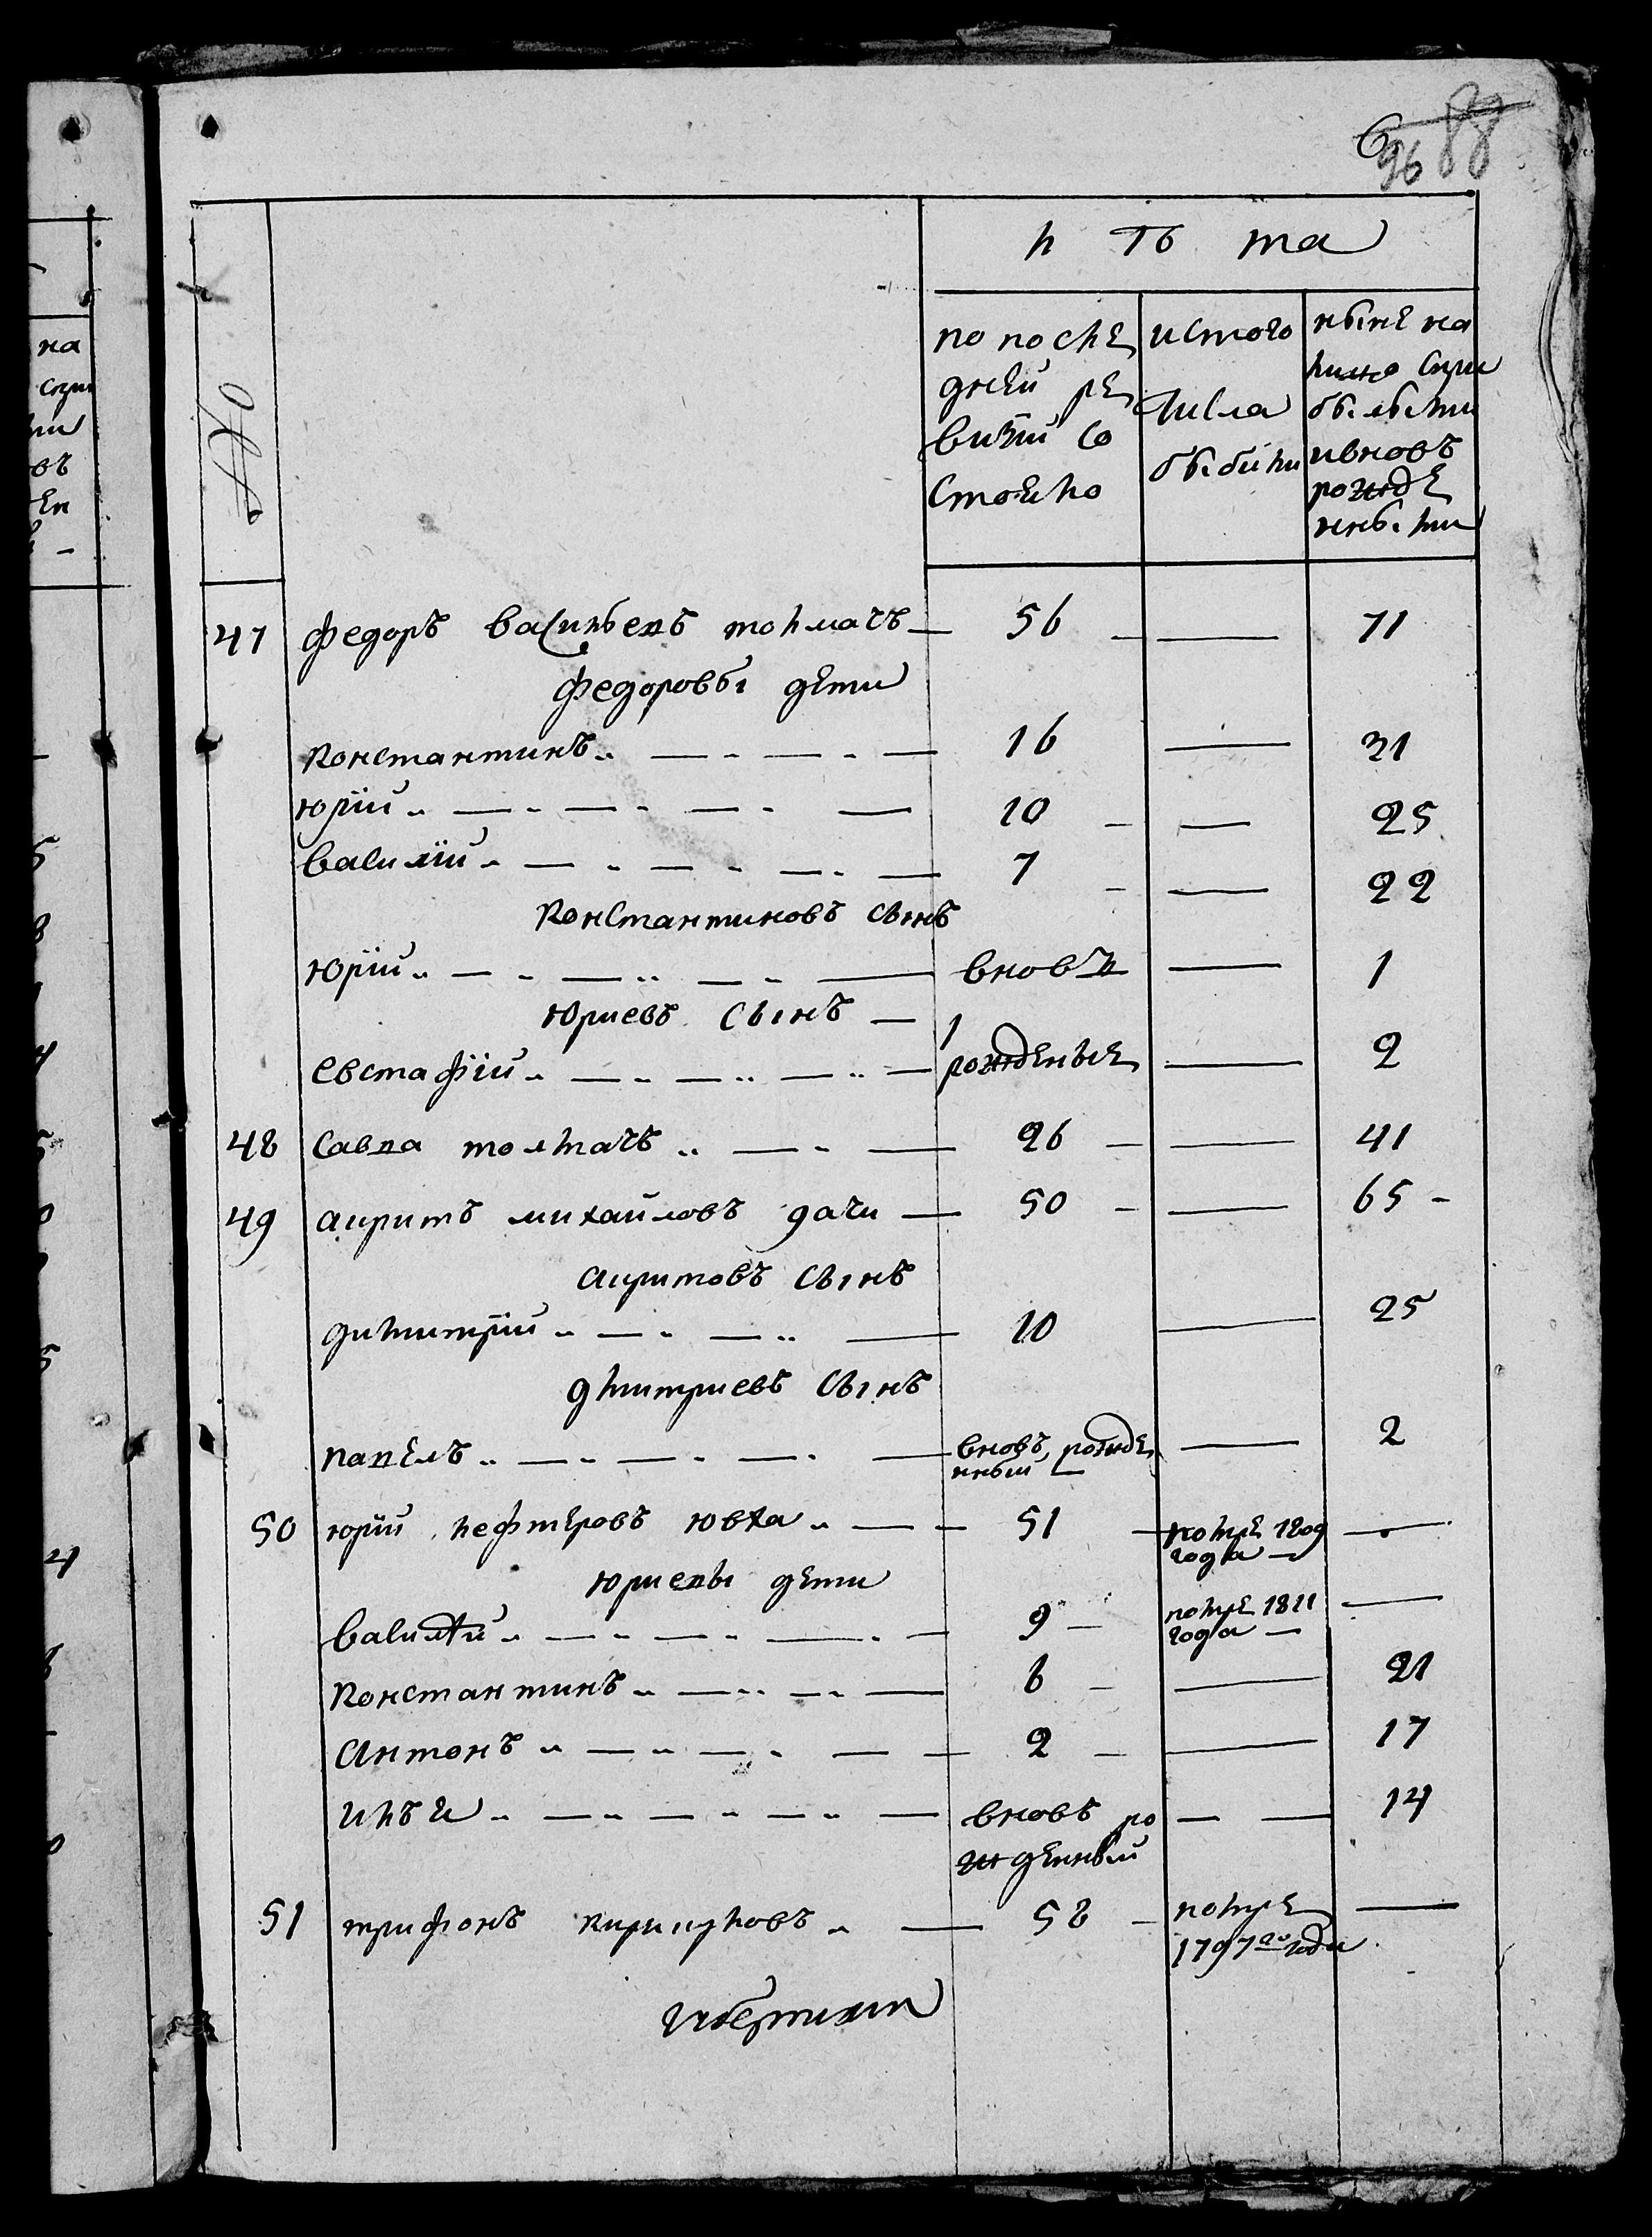 6
96 88
л ѣ та
№
по после
дней ре
визiи со
стояло
ис того
числа
выбыли
ныне на
лицо с при
былыми
и вновъ
рожде
нными
47 федоръ васильевъ толмачъ — 56 — — 71
федоровы дети
константинъ — 16 — 31
юрiй — 10 — 25
василiй — 7 — 22
константиновъ сынъ
юрiй — вновъ — 1
юриевъ сынъ —
евстафiй — рожденые — 2
48 савва толмачъ — 26 — 41
49 спиритъ михайловъ дачи — 50 — 65
спиритовъ сынъ
димитрiй — 10 — 25
дмитриевъ сынъ
павелъ — вновъ рожде — 2
нный
50 юрiй лефтеровъювха — 51 — помре 1809 —
года —
юриевы дети
василiй — 9 — помре 1811 —
года —
константинъ — 6 — 21
антонъ — 2 — 17
илья — вновъ ро — 14
жденный
51 трифонъ — 58 — помре —
1797го года